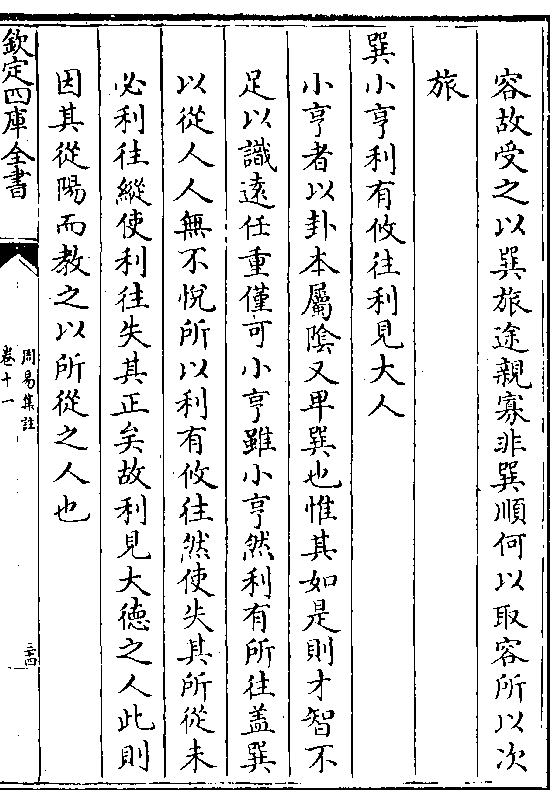 容故受之以巽旅途親寡非巽順何以取容所以次
旅
巽小亨利有攸往利見大人
小亨者以卦本屬陰又卑巽也惟其如是則才智不
足以識遠任重僅可小亨雖小亨然利有所往盖巽
以從人人無不悅所以利有攸往然使失其所從未
必利往縱使利往失其正矣故利見大德之人此則
因其從陽而教之以所從之人也
欽定四庫全書
周易集註
卷十一
三十四